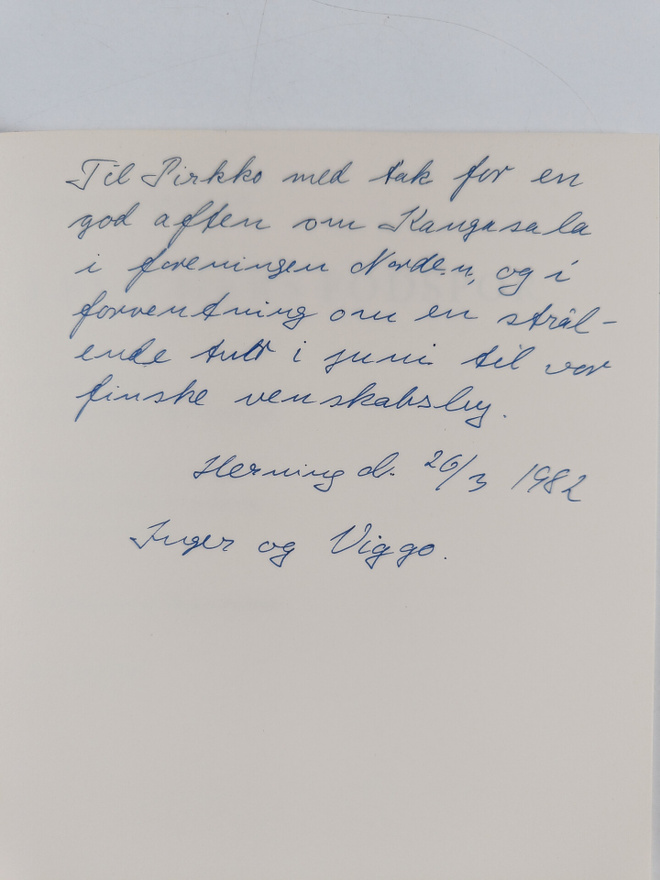 Til Pirkko med tak for en
god aften om Kangasala
i foreningen Norden, og i
forventning om en strål-
ende tur i juni til vor
finske venskabsby.
Herning d. 26/3 1982
Inger og Viggo.